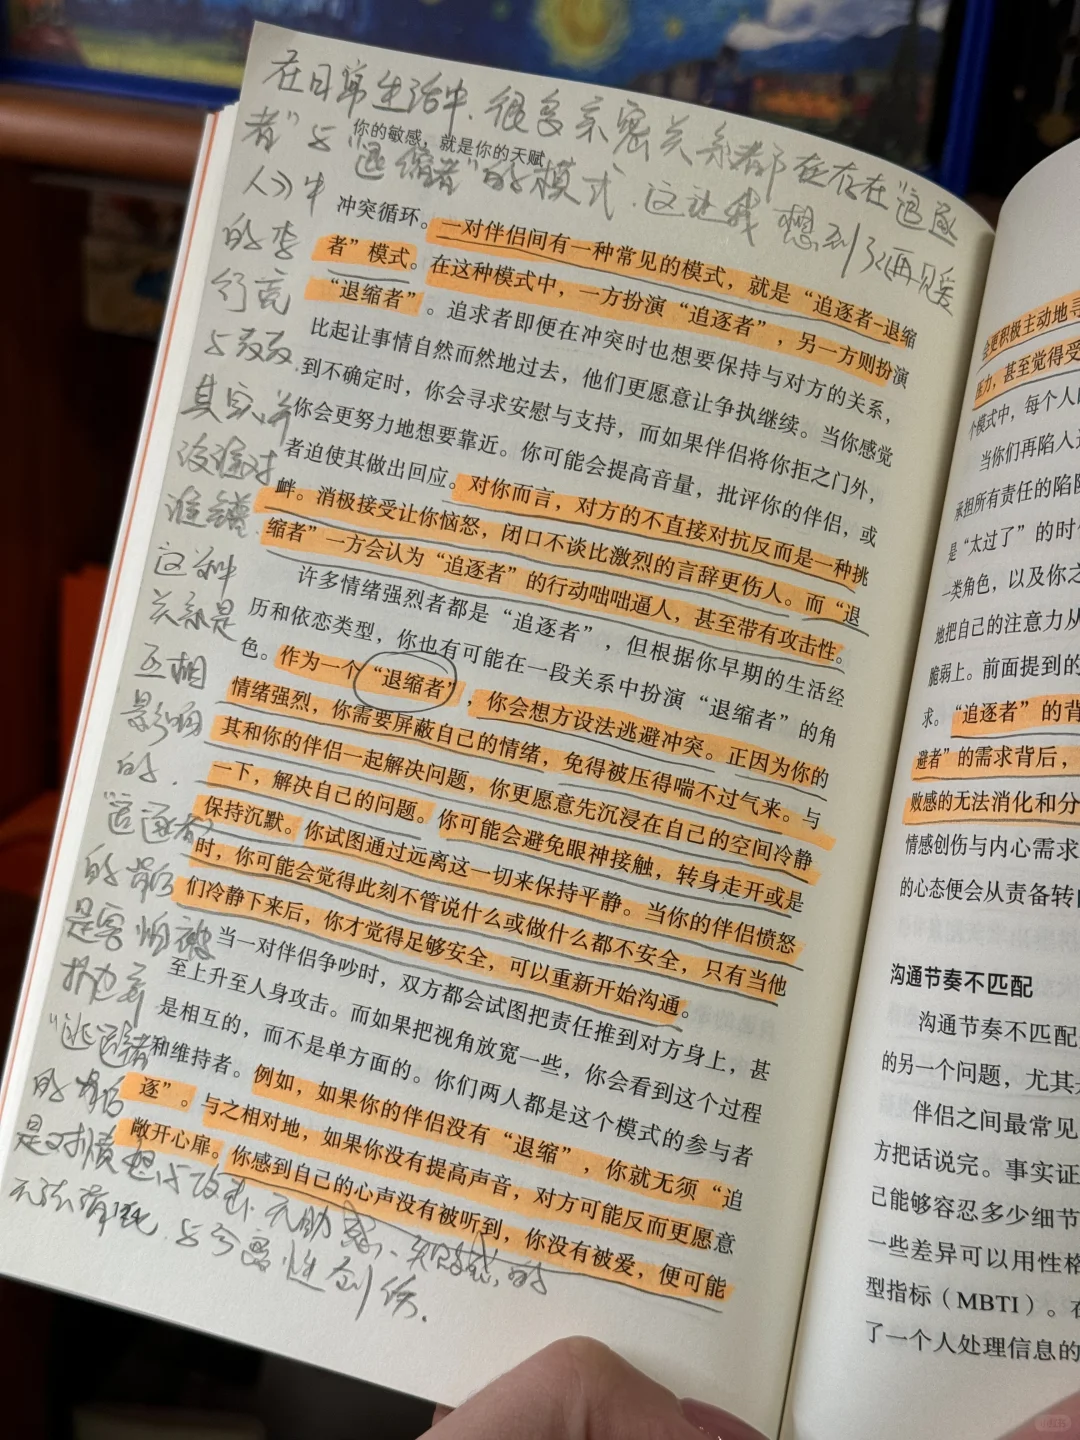 在日常生活中，很多亲密关系都存在“追逐
者”与“退缩者”的模式．这让我想到了《再见爱
人》中
的李
行亮
与麦琳，
其实并
没谁对
谁错，
这种
关系是
互相
影响
的．
“追逐者”
的背后
是害怕被
抛弃
“逃避者”
的背后
是对愤怒与攻击、无助感、失败感的
无法消化与分离性创伤．
你的敏感，就是你的天赋
冲突循环。一对伴侣间有一种常见的模式，就是“追逐者–退缩
者”模式。在这种模式中，一方扮演“追逐者”，另一方则扮演
“退缩者”。追求者即便在冲突时也想要保持与对方的关系，
比起让事情自然而然地过去，他们更愿意让争执继续。当你感觉
到不确定时，你会寻求安慰与支持，而如果伴侣将你拒之门外，
你会更努力地想要靠近。你可能会提高音量，批评你的伴侣，或
者迫使其做出回应。对你而言，对方的不直接对抗反而是一种挑
衅。消极接受让你恼怒，闭口不谈比激烈的言辞更伤人。而“退
缩者”一方会认为“追逐者”的行动咄咄逼人，甚至带有攻击性。
许多情绪强烈者都是“追逐者”，但根据你早期的生活经
历和依恋类型，你也有可能在一段关系中扮演“退缩者”的角
色。作为一个“退缩者”，你会想方设法逃避冲突。正因为你的
情绪强烈，你需要屏蔽自己的情绪，免得被压得喘不过气来。与
其和你的伴侣一起解决问题，你更愿意先沉浸在自己的空间冷静
一下，解决自己的问题。你可能会避免眼神接触，转身走开或是
保持沉默。你试图通过远离这一切来保持平静。当你的伴侣愤怒
时，你可能会觉得此刻不管说什么或做什么都不安全，只有当他
们冷静下来后，你才觉得足够安全，可以重新开始沟通。
当一对伴侣争吵时，双方都会试图把责任推到对方身上，甚
至上升至人身攻击。而如果把视角放宽一些，你会看到这个过程
是相互的，而不是单方面的。你们两人都是这个模式的参与者
和维持者。例如，如果你的伴侣没有“退缩”，你就无须“追
逐”。与之相对地，如果你没有提高声音，对方可能反而更愿意
敞开心扉。你感到自己的心声没有被听到，你没有被爱，便可能
会更积极主动地寻
压力，甚至觉得受
个模式中，每个人的
当你们再陷入
承担所有责任的陷阱
是“太过了”的时
一类角色，以及你之
地把自己的注意力从
脆弱上。前面提到的
求。“追逐者”的背
避者”的需求背后，
败感的无法消化和分
情感创伤与内心需求
的心态便会从责备转
沟通节奏不匹配
沟通节奏不匹配
的另一个问题，尤其
伴侣之间最常见
方把话说完。事实证
己能够容忍多少细节
一些差异可以用性格
型指标（MBTI）。在
了一个人处理信息的